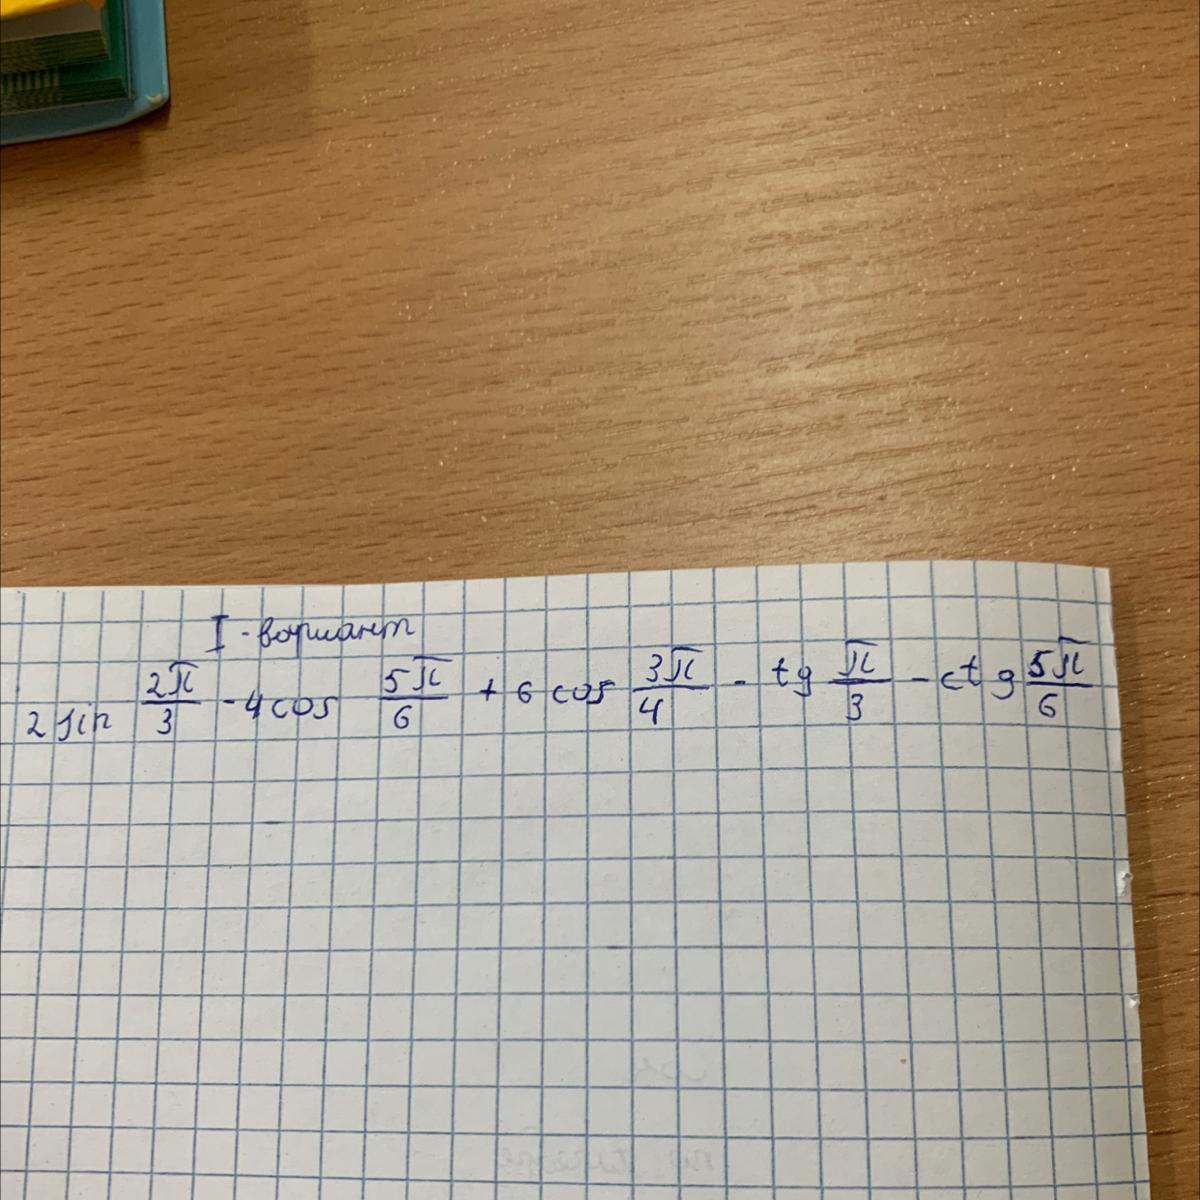 I - вариант
2 sin 2π/3 - 4 cos 5π/6 + 6 cos 3π/4 - tg π/3 - ctg 5π/6